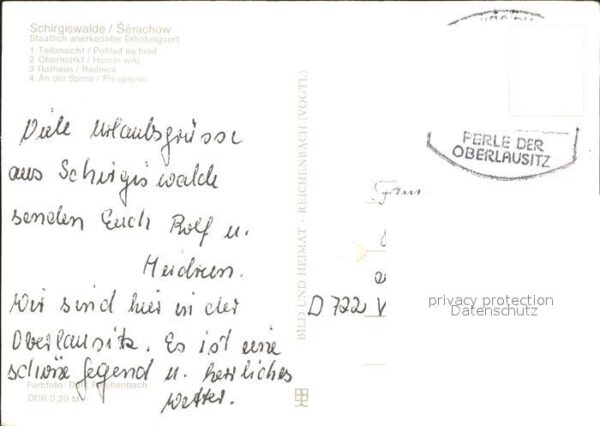 Schirgiswalde / Šěrachow
Staatlich anerkannter Erholungsort
1 Teilansicht / Pohlad na hród
2 Obermarkt / Hornje wiki
3 Rathaus / Radnica
4 An der Spree / Při sprjewi
Viele Urlaubsgrüsse
aus Schirgiswalde
senden Euch Rolf u.
Heidrun.
Wir sind hier in der
Oberlausitz. Es ist eine
schöne Gegend u. herrliches
Wetter.
Farbfoto: Reichenbach
DDR 0,20 M
BILD UND HEIMAT · REICHENBACH (VOGTL)
PERLE DER
OBERLAUSITZ
Frau
D 722 V
privacy protection
Datenschutz